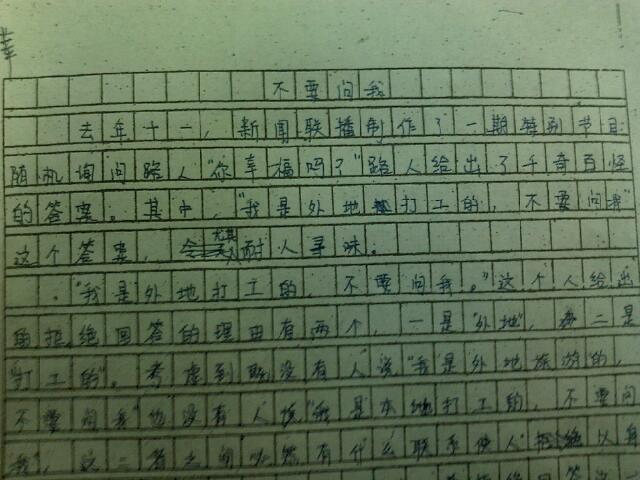 不要问我
去年十一，新闻联播制作了一期特别节目：
随机询问路人“你幸福吗？”路人给出了千奇百怪
的答案。其中，“我是外地打工的，不要问我”
这个答案，尤其耐人寻味。
“我是外地打工的，不要问我。”这个人给出
的拒绝回答的理由有两个，一是“外地”，第二是
“打工的”。考虑到既没有人说“我是外地旅游的，
不要问我”也没有人说“我是本地打工的，不要问
我”，这二者之间必然有什么联系使人拒绝以